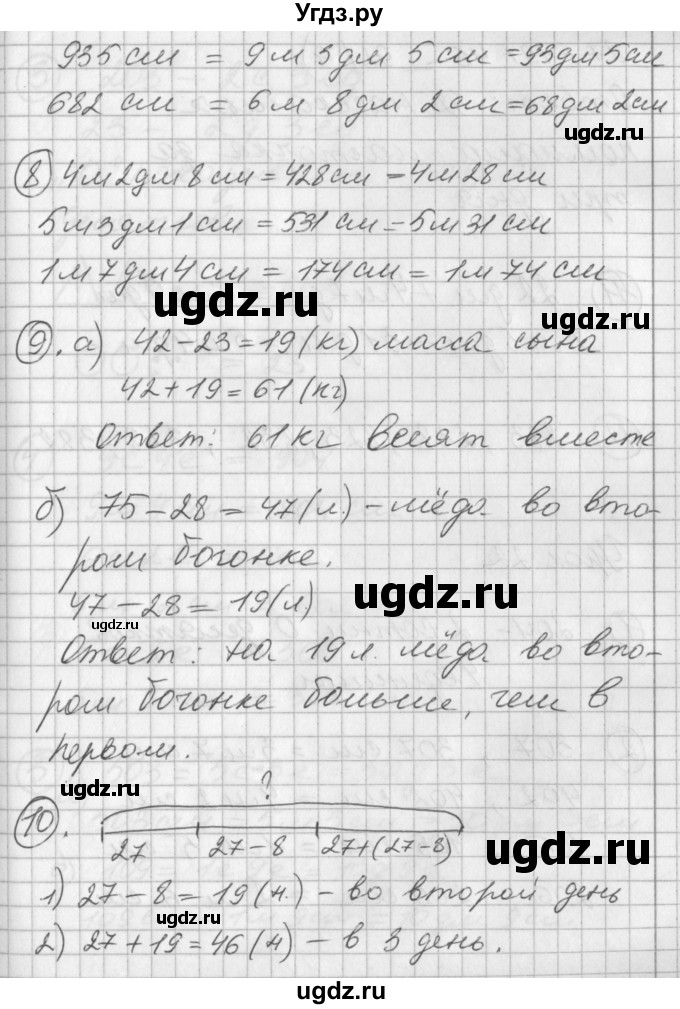 Угдз.ру
935 см = 9 м 3 дм 5 см = 93 дм 5 см
682 см = 6 м 8 дм 2 см = 68 дм 2 см
ugdz.ru
ugdz.ru
8 4 м 2 дм 8 см = 428 см = 4 м 28 см
5 м 3 дм 1 см = 531 см = 5 м 31 см
1 м 7 дм 4 см = 174 см = 1 м 74 см
ugdz.ru
ugdz.ru
9. а) 42 - 23 = 19 (кг) масса сына
42 + 19 = 61 (кг)
Ответ: 61 кг весят вместе
б) 75 - 28 = 47 (л.) - мёда во вто-
ром богонке.
ugdz.ru
47 - 28 = 19 (л.)
ugdz.ru
Ответ: на 19 л. мёда во вто-
ром богонке больше, чем в
первом.
ugdz.ru
?
10.
27 27 - 8 27 + (27 - 8)
ugdz.ru
ugdz.ru
1) 27 - 8 = 19 (н.) - во второй день
2) 27 + 19 = 46 (н) - в 3 день.
ugdz.ru
ugdz.ru